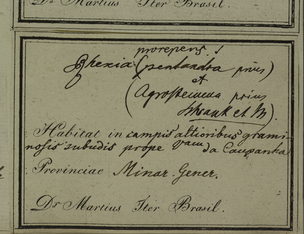 Dr Martius Iter Brasil.
prorepens
Rhexia (pentandra prius)
et
(Agrostemma prius
Schrank et M)
Habitat in campis altioribus grami-
nosis subudis prope vam da Campanha
Provinciae Minar Gener.
Dr Martius Iter Brasil.